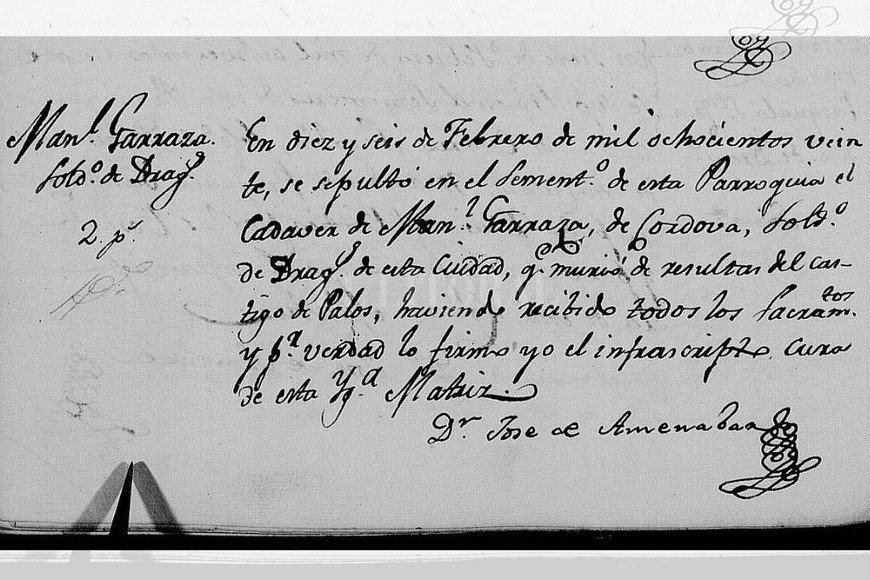 Man.l Garraza.
Sold.o de Drag.s
2. p.s
En diez y seis de Febrero de mil ochocientos vein
te, se sepultó en el Sement.o de esta Parroquia el
Cadaver de Man.l Garraza, de Cordova, Sold.o
de Drag.s de esta Ciudad, q.e murió de resultas del cas-
tigo de Palos, haviendo recibido todos los Sacram.tos
y p.r verdad lo firmo yo el infrascripto Cura
de esta Yg.a Matriz.
D.r Jose de Amenabar